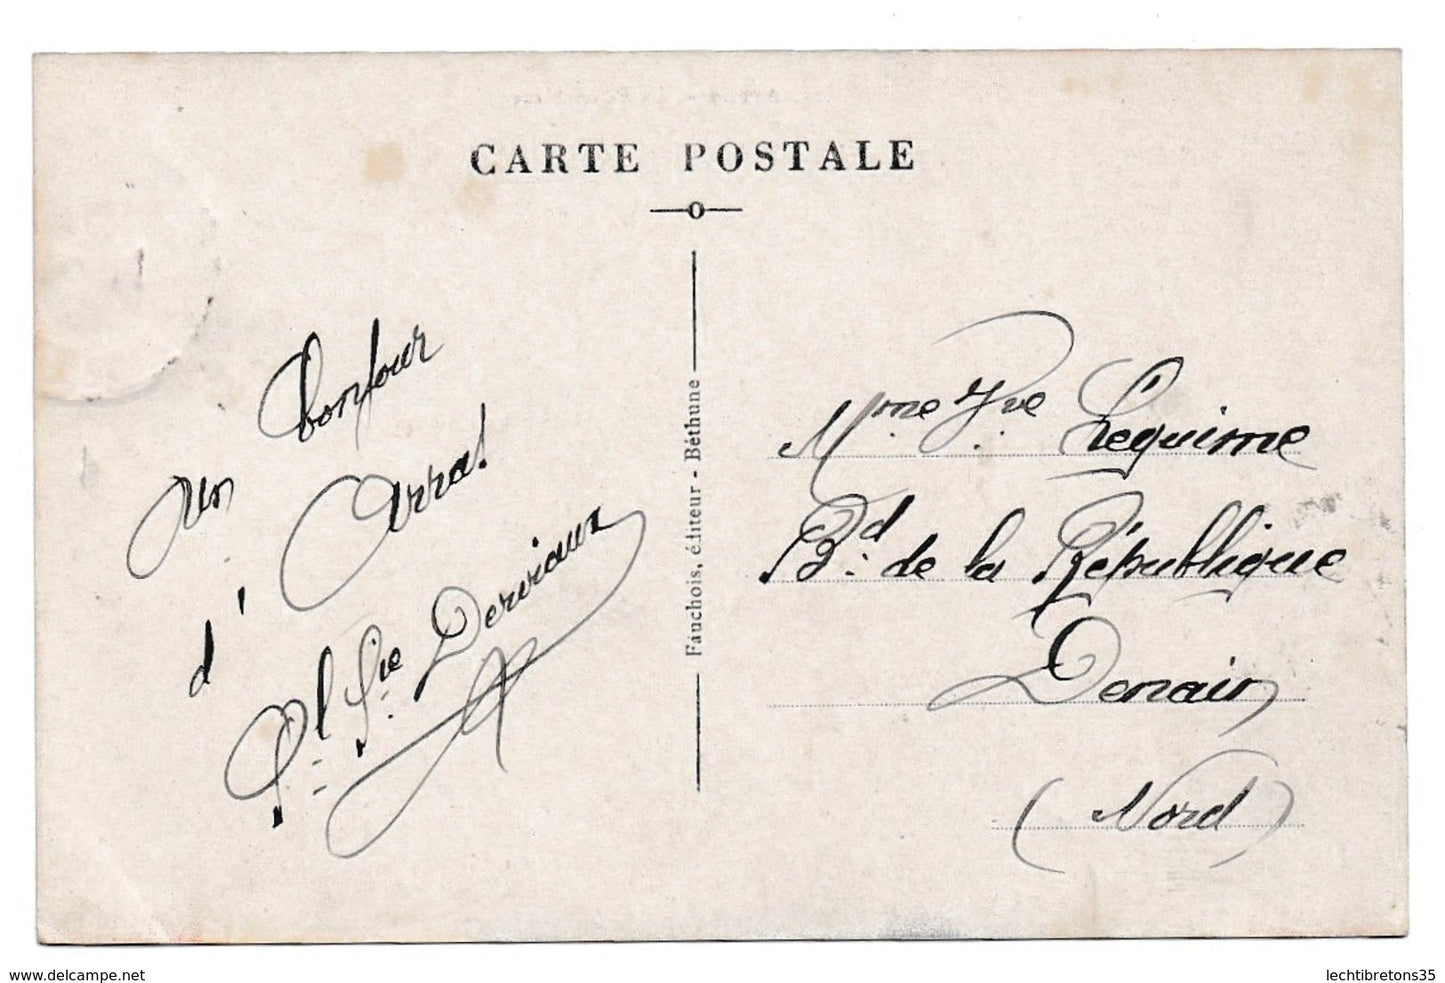 CARTE POSTALE
Un bonjour
d'Arras
Pl. Ste Derviaux
Fauchois, éditeur - Béthune
Mme Vve Lequime
Bd. de la République
Denain
(Nord)
www.delcampe.net
lechtibretons35